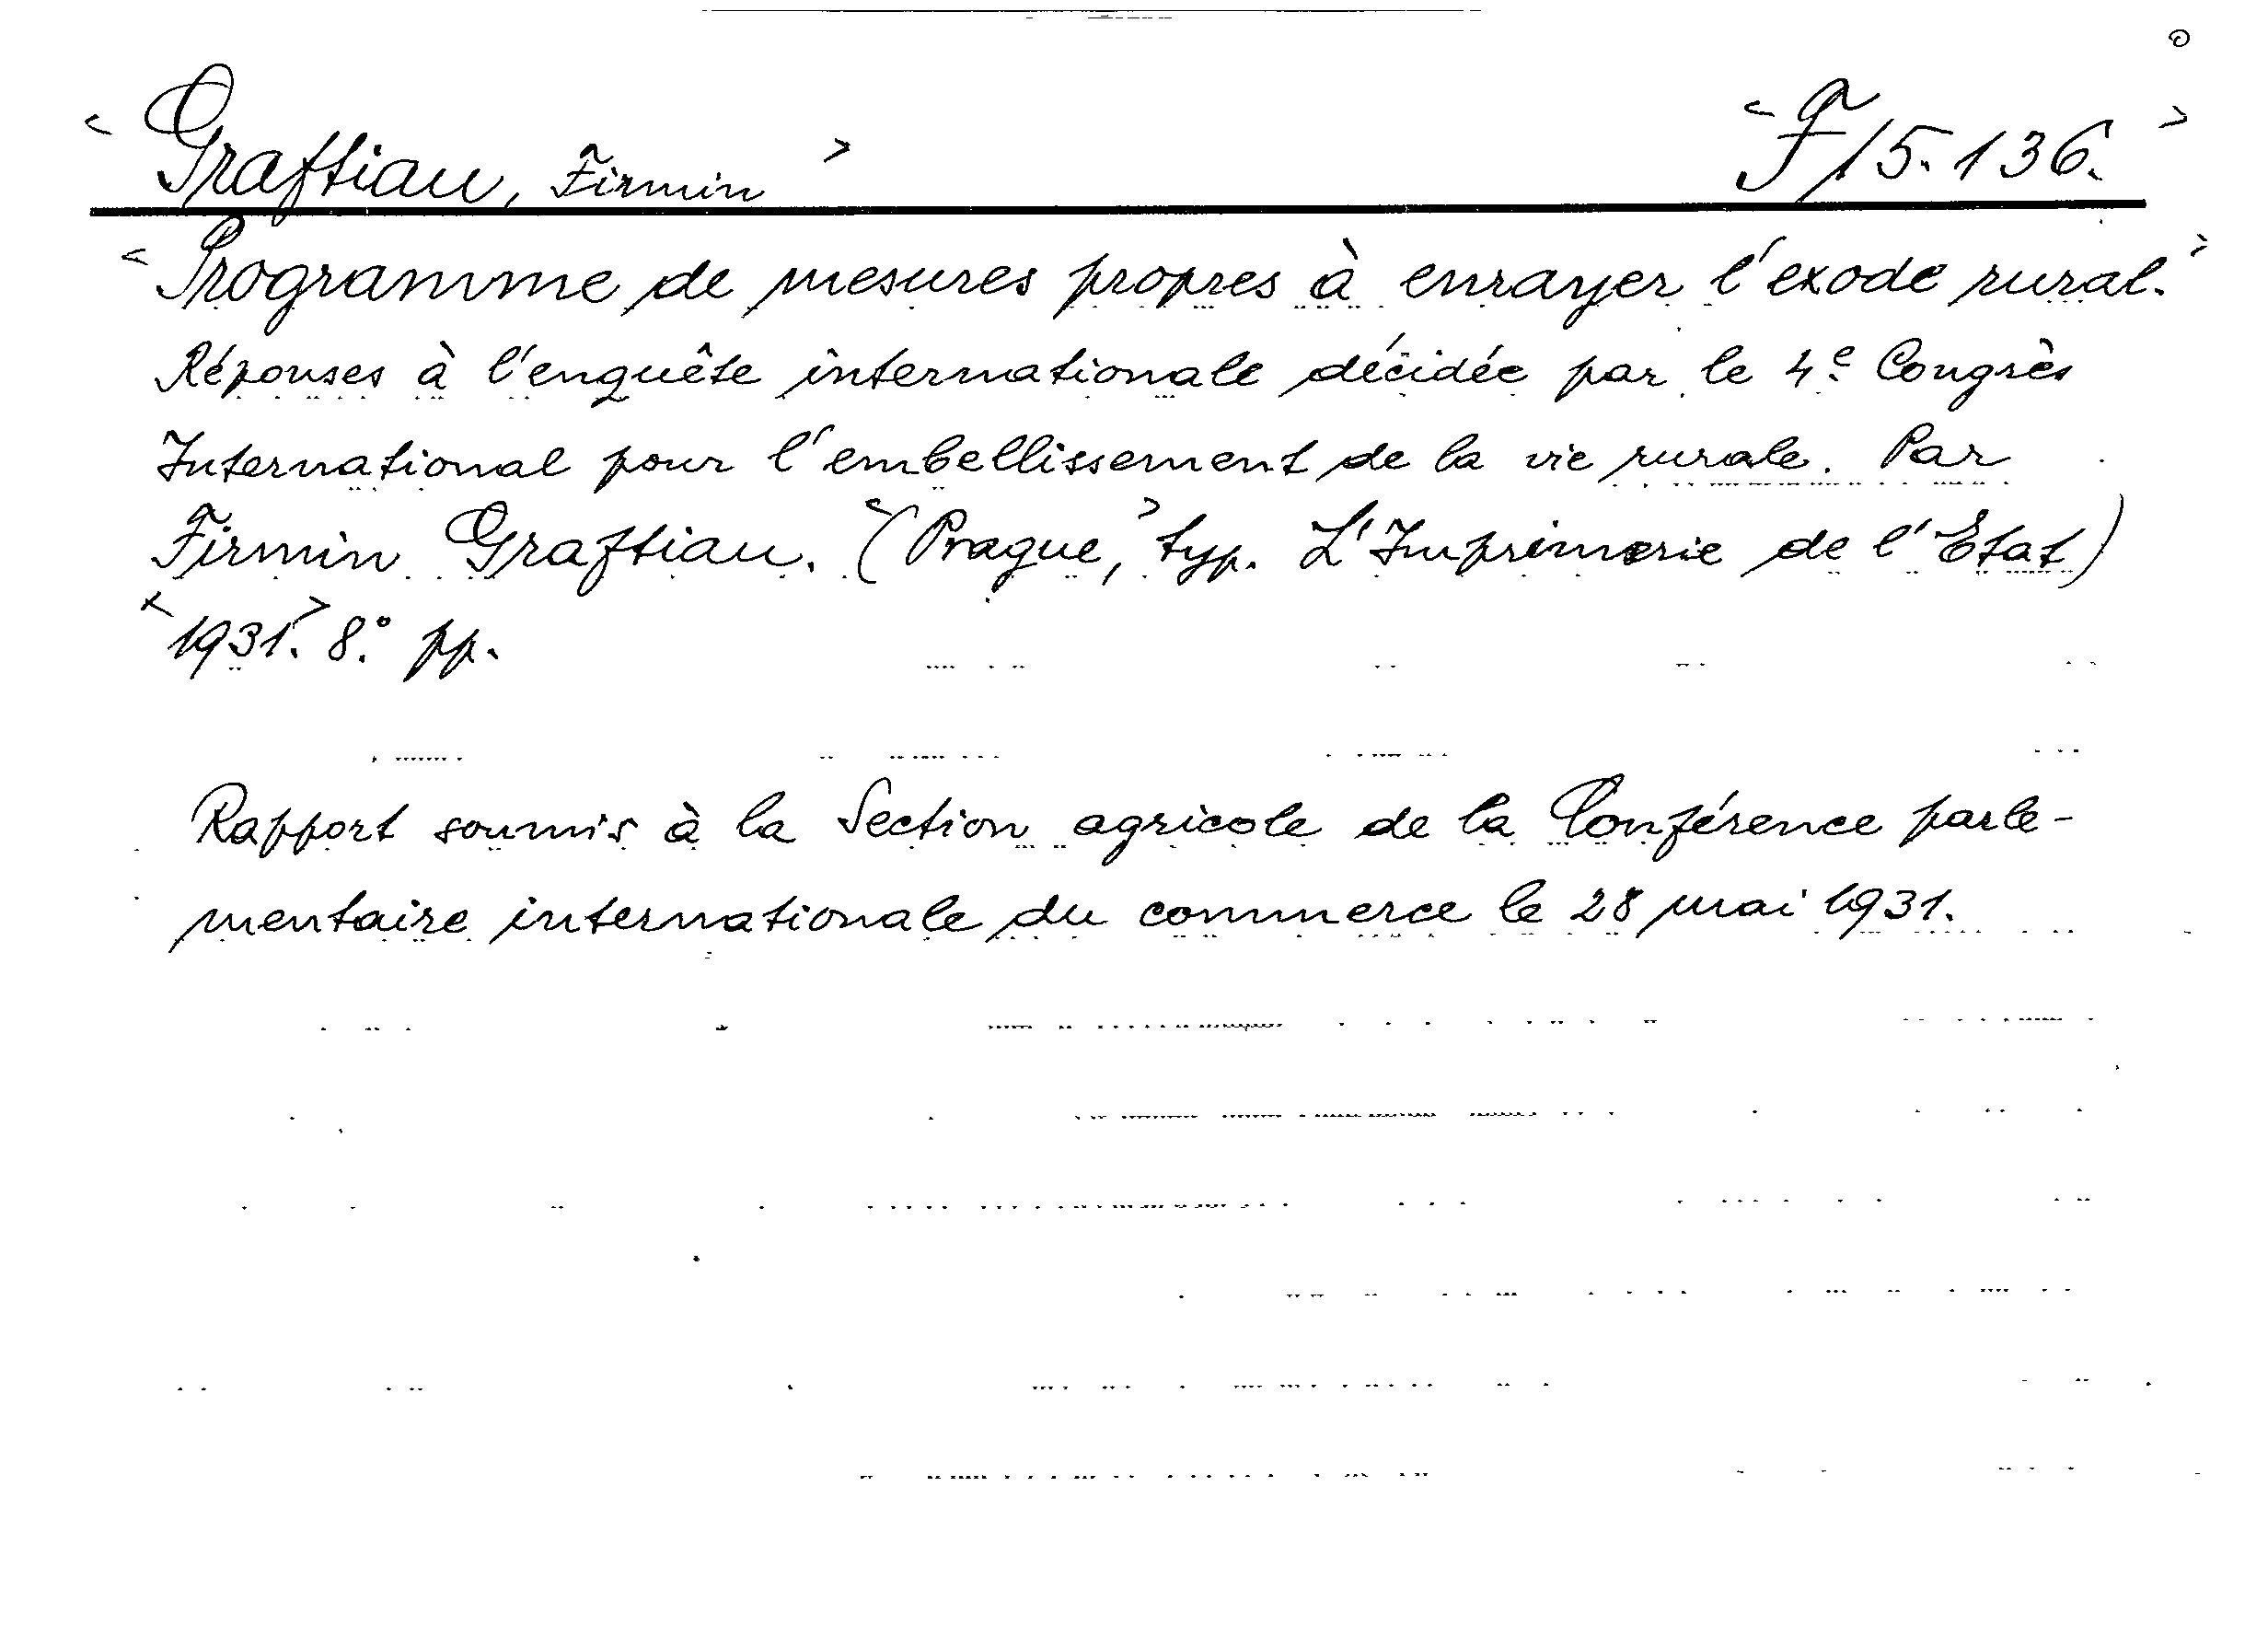 < Graftiau, Firmin > < F/5.136. >
< Programme de mesures propres à enrayer l'exode rural. >
Réponses à l'enquête internationale décidée par le 4e Congrès
International pour l'embellissement de la vie rurale. Par
Firmin Graftiau. <(Prague,> typ. L'Imprimerie de l'Etat)
<1931.> 8.° pp.
Rapport soumis à la Section agricole de la Conférence parle-
mentaire internationale du commerce le 28 mai 1931.